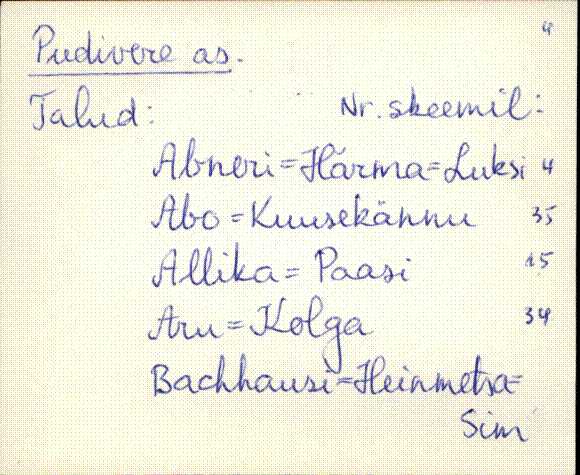 4
Pudivere as.
Talud: Nr. skeemil:
Abneri=Härma=Luksi 4
Abo=Kuusekännu 35
Allika=Paasi 15
Aru=Kolga 34
Bachhausi=Heinmetsa=
Sim